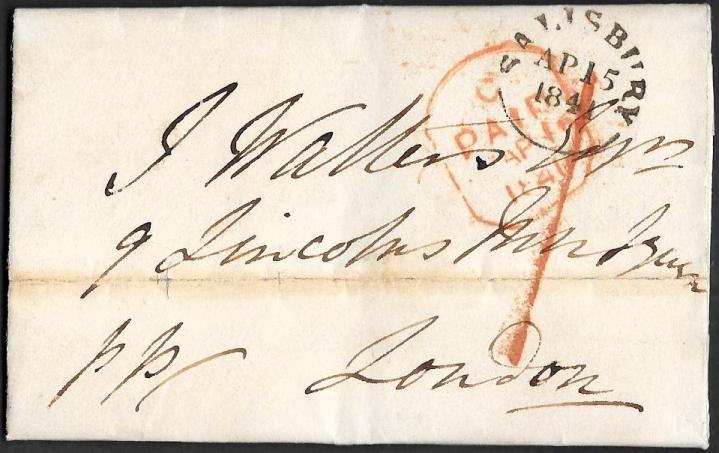 SALISBURY
AP 15
1841
PAID
AP 16
1841
J Walters Esqre
9 Lincolns Inn Square
pp London